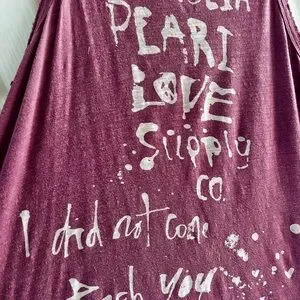 PEARL
LOVE
Supply
co.
I did not come
you